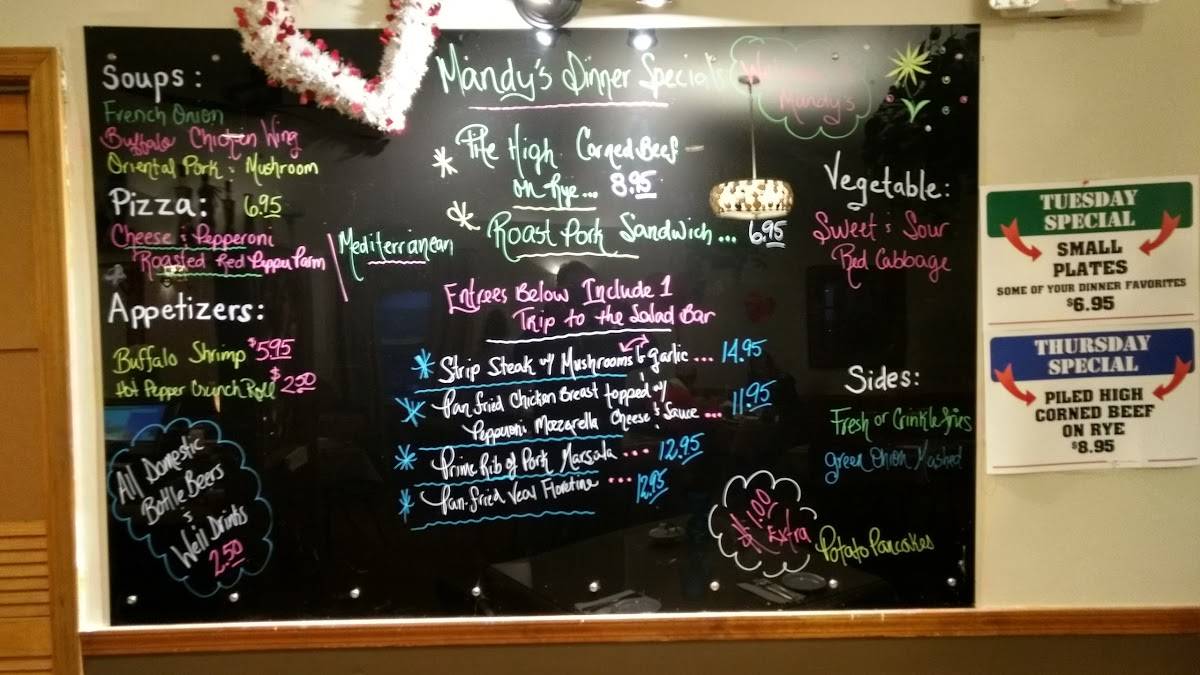 Soups:
French Onion
Buffalo Chicken Wing
Oriental Pork & Mushroom
Pizza: 6.95
Cheese & Pepperoni
Roasted Red Pepper Parm
Mediterranean
Appetizers:
Buffalo Shrimp $5.95
Hot Pepper Crunch Roll $2.50
All Domestic
Bottle Beers
&
Well Drinks
2.50
Mandy's Dinner Specials
Pile High Corned Beef
on Rye... 8.95
Roast Pork Sandwich... 6.95
Entrees Below Include 1
Trip to the Salad Bar
Strip Steak w/ Mushrooms & garlic ... 14.95
Pan Fried Chicken Breast topped w/
Pepperoni Mozzarella Cheese & Sauce ... 11.95
Prime Rib of Pork Marsala ... 12.95
Pan-Fried Veal Florentine ... 12.95
Mandy's
Vegetable:
Sweet & Sour
Red Cabbage
Sides:
Fresh or Crinkle fries
green Onion Mashed
$1.00
Extra
Potato Pancakes
TUESDAY
SPECIAL
SMALL
PLATES
SOME OF YOUR DINNER FAVORITES
$6.95
THURSDAY
SPECIAL
PILED HIGH
CORNED BEEF
ON RYE
$8.95